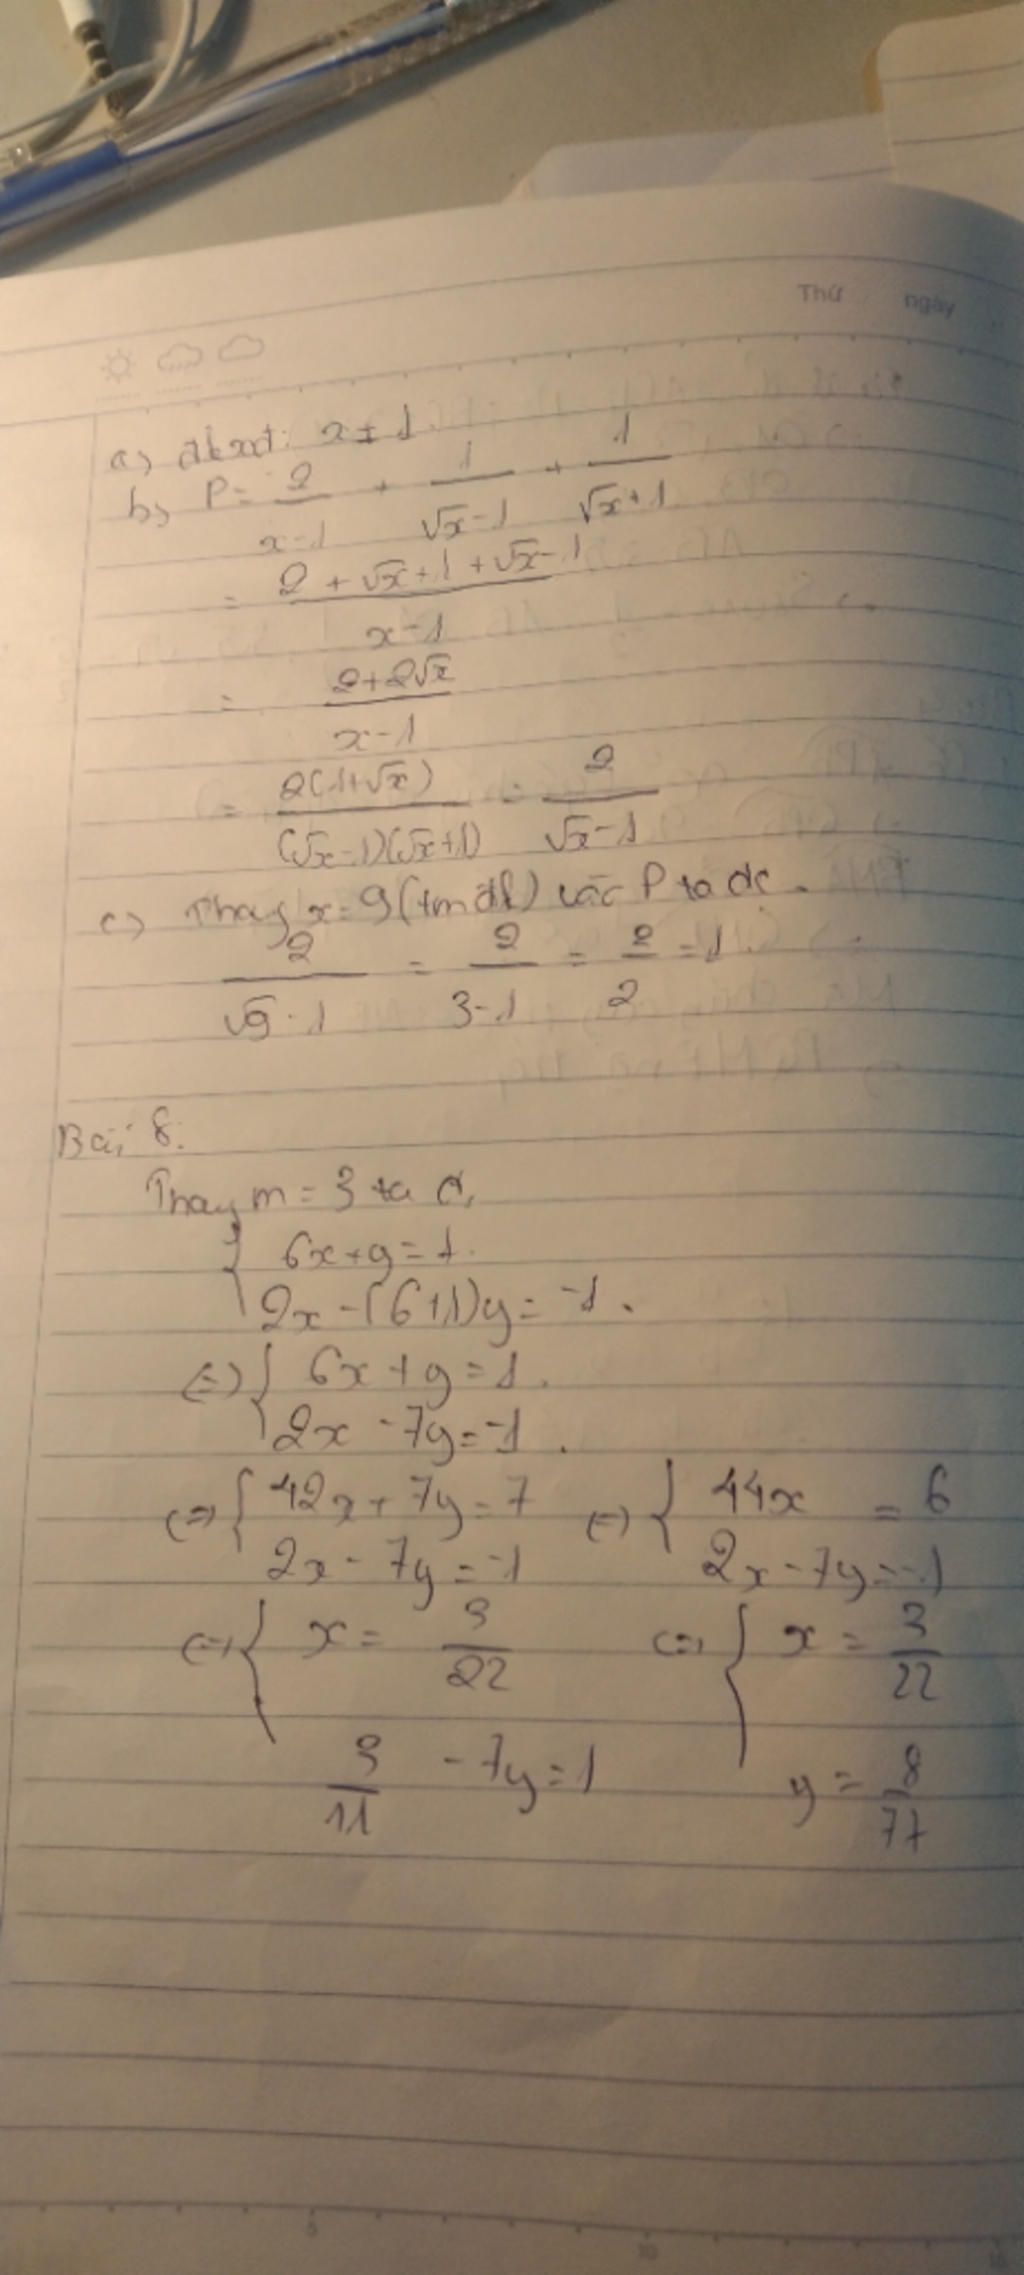 Thứ ngày
a) đkxđ: x ≠ 1
b) P = 2/(x-1) + 1/(√x-1) + 1/(√x+1)
= (2+√x+1+√x-1)/(x-1)
= (2+2√x)/(x-1)
= 2(1+√x)/((√x-1)(√x+1)) = 2/(√x-1)
c) Thay x=9 (tmđk) vào P ta đc
2/(√9-1) = 2/(3-1) = 2/2 = 1
Bài 8:
Thay m = 3 ta đ
{ 6x+y=1
2x-(6+1)y=-1
(=) { 6x+y=1
2x-7y=-1
(=) { 42x+7y=7 (=) { 44x = 6
2x-7y=-1 2x-7y=-1
(=) { x = 3/22 (=) { x = 3/22
3/11 -7y=1 y = 8/77
5 10 15